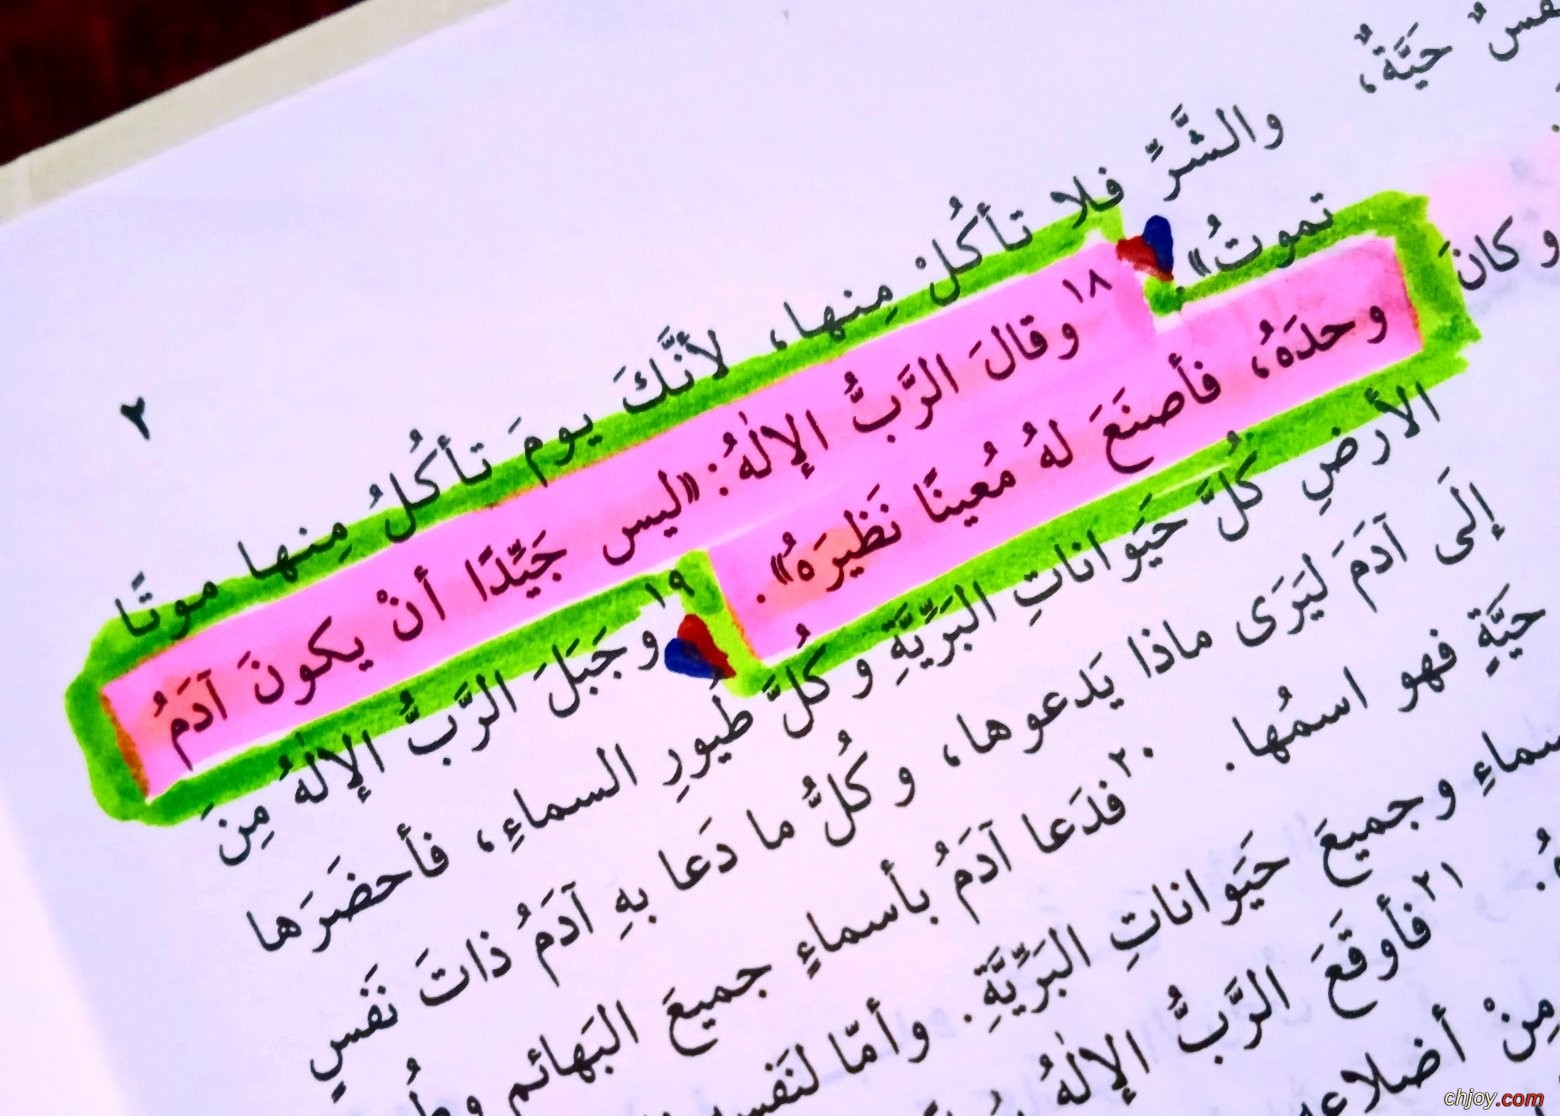 ٢
حَيَّةٌ،
وكانَ
والشَّرِّ فلا تأكُلْ مِنها، لأنَّكَ يومَ تأكُلُ مِنها موتًا
تموتُ» ١٨ وقالَ الرَّبُّ الإلٰهُ: «ليس جَيِّدًا أنْ يكونَ آدَمُ
وحدَهُ، فأصنَعَ لهُ مُعينًا نَظيرَهُ». ١٩ وجَبَلَ الرَّبُّ الإلٰهُ مِنَ
الأرضِ كُلَّ حَيَواناتِ البَرِّيَّةِ وكُلَّ طُيورِ السماءِ، فأحضَرَها
إلَى آدَمَ ليَرَى ماذا يَدعوها، وكُلُّ ما دَعا بهِ آدَمُ ذاتَ نَفسٍ
حيَّةٍ فهو اسمُها. ٢٠ فدَعا آدَمُ بأسماءٍ جميعَ البَهائمِ
وجميعَ حَيَواناتِ البَرِّيَّةِ. وأمّا
٢١ فأوقَعَ الرَّبُّ الإلٰهُ
مِنْ
chjoy.com